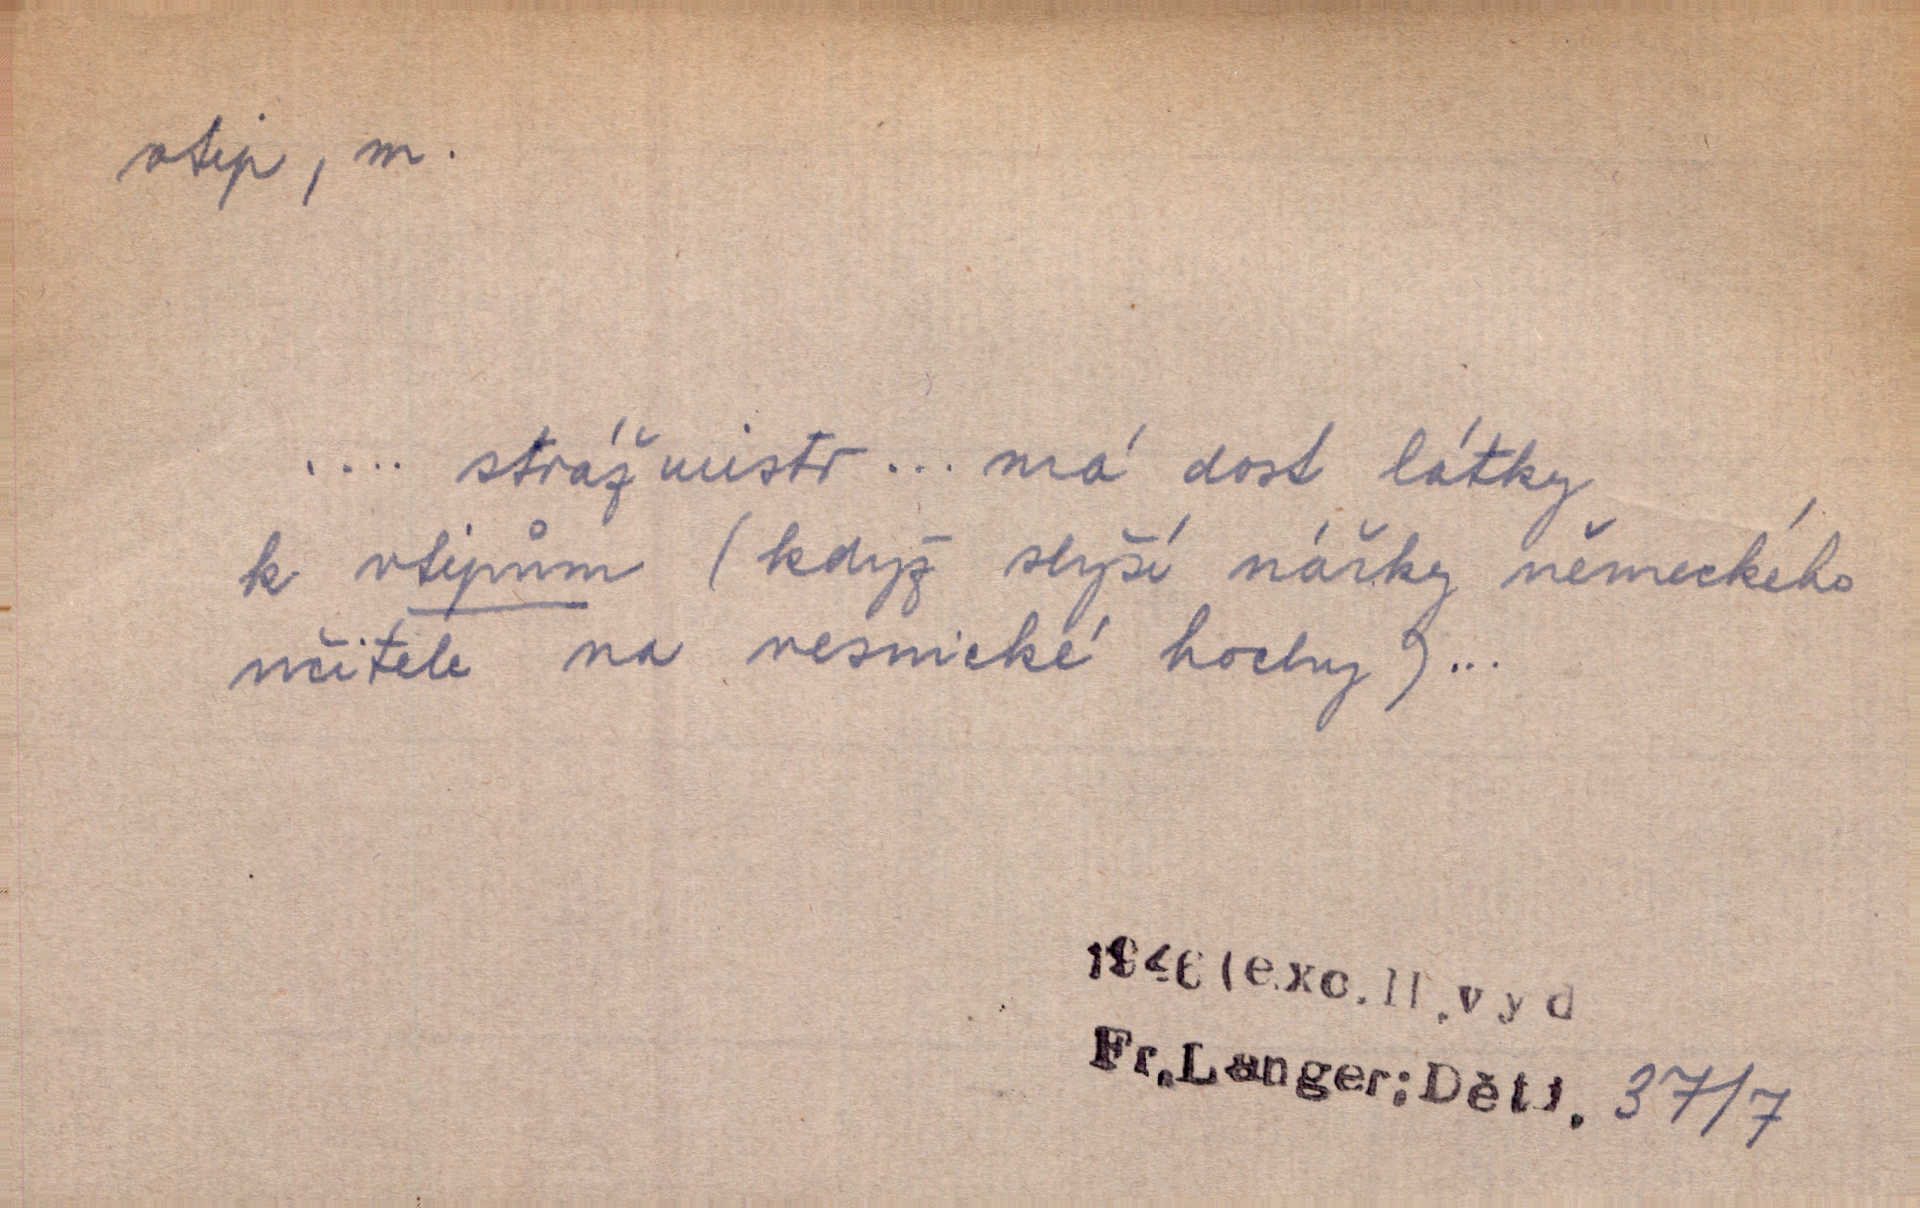 vtip, m.
.... strážmistr ... má dost látky
k vtipům (když slyší nářky německého
učitele na vesnické hochy)...
1946 (exc. II. vyd
Fr. Langer: Děti. 37/7